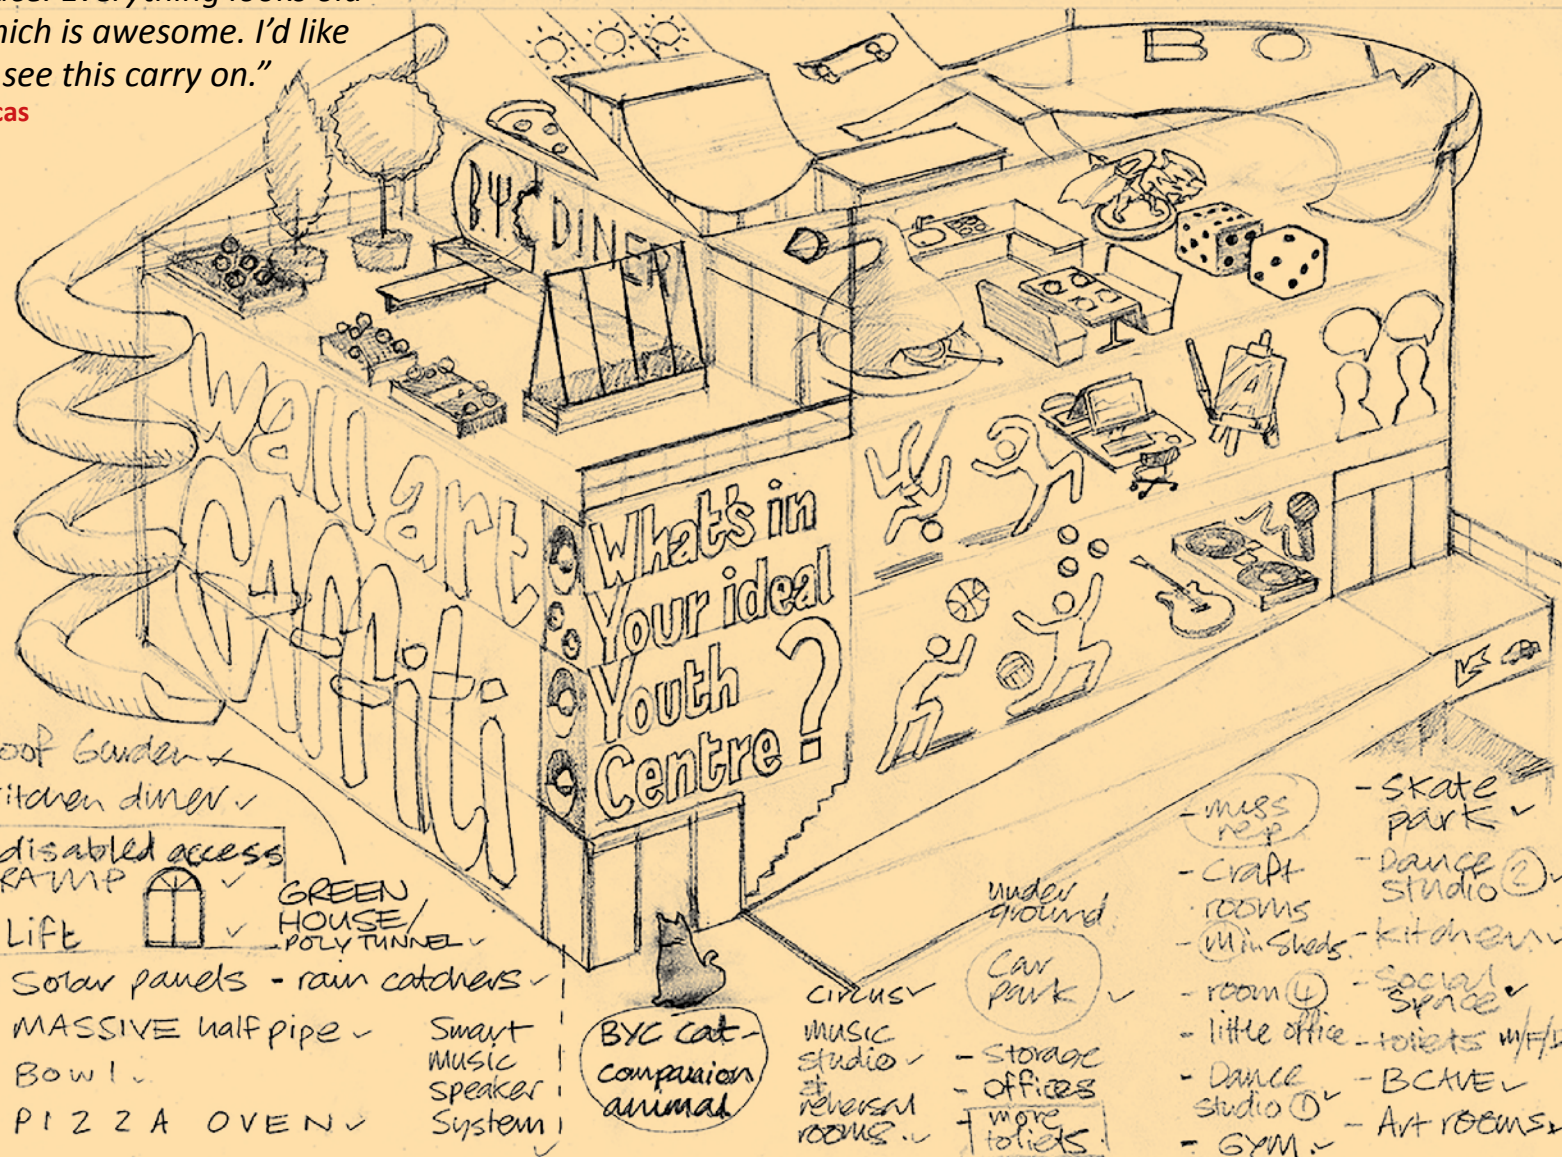 Everything looks old
which is awesome. I'd like
see this carry on."
cas
BO
B.Y.C DINER
wall art
Graffiti
What's in
Your ideal
Youth
Centre?
oof Garden
itchen diner ✓
disabled access
RAMP ✓
Lift ✓
GREEN
HOUSE/
POLY TUNNEL ✓
Solar panels - rain catchers ✓
MASSIVE half pipe ✓
Bowl ✓
PIZZA OVEN ✓
Smart
music
speaker
System
✓
BYC cat -
companion
animal
circus ✓
music
studio ✓
&
rehersal
rooms. ✓
under
ground
Car
park ✓
- Storage
- offices
- more
toliets
- Craft
rooms
- room ④
- little office
- Dance
studio ① ✓
- GYM ✓
- Skate
park ✓
- Dance
studio ② ✓
- kitchen ✓
- Social
Space ✓
- toliets M/F/D
- BCAVE ✓
- Art rooms ✓